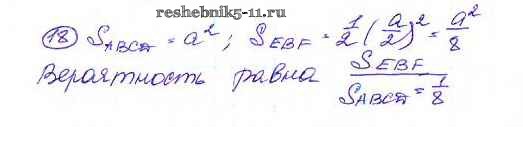 reshebnik5-11.ru
18 S_ABCД = a²; S_EBF = 1/2 (a/2)² = a²/8
Вероятность равна S_EBF/S_ABCД = 1/8